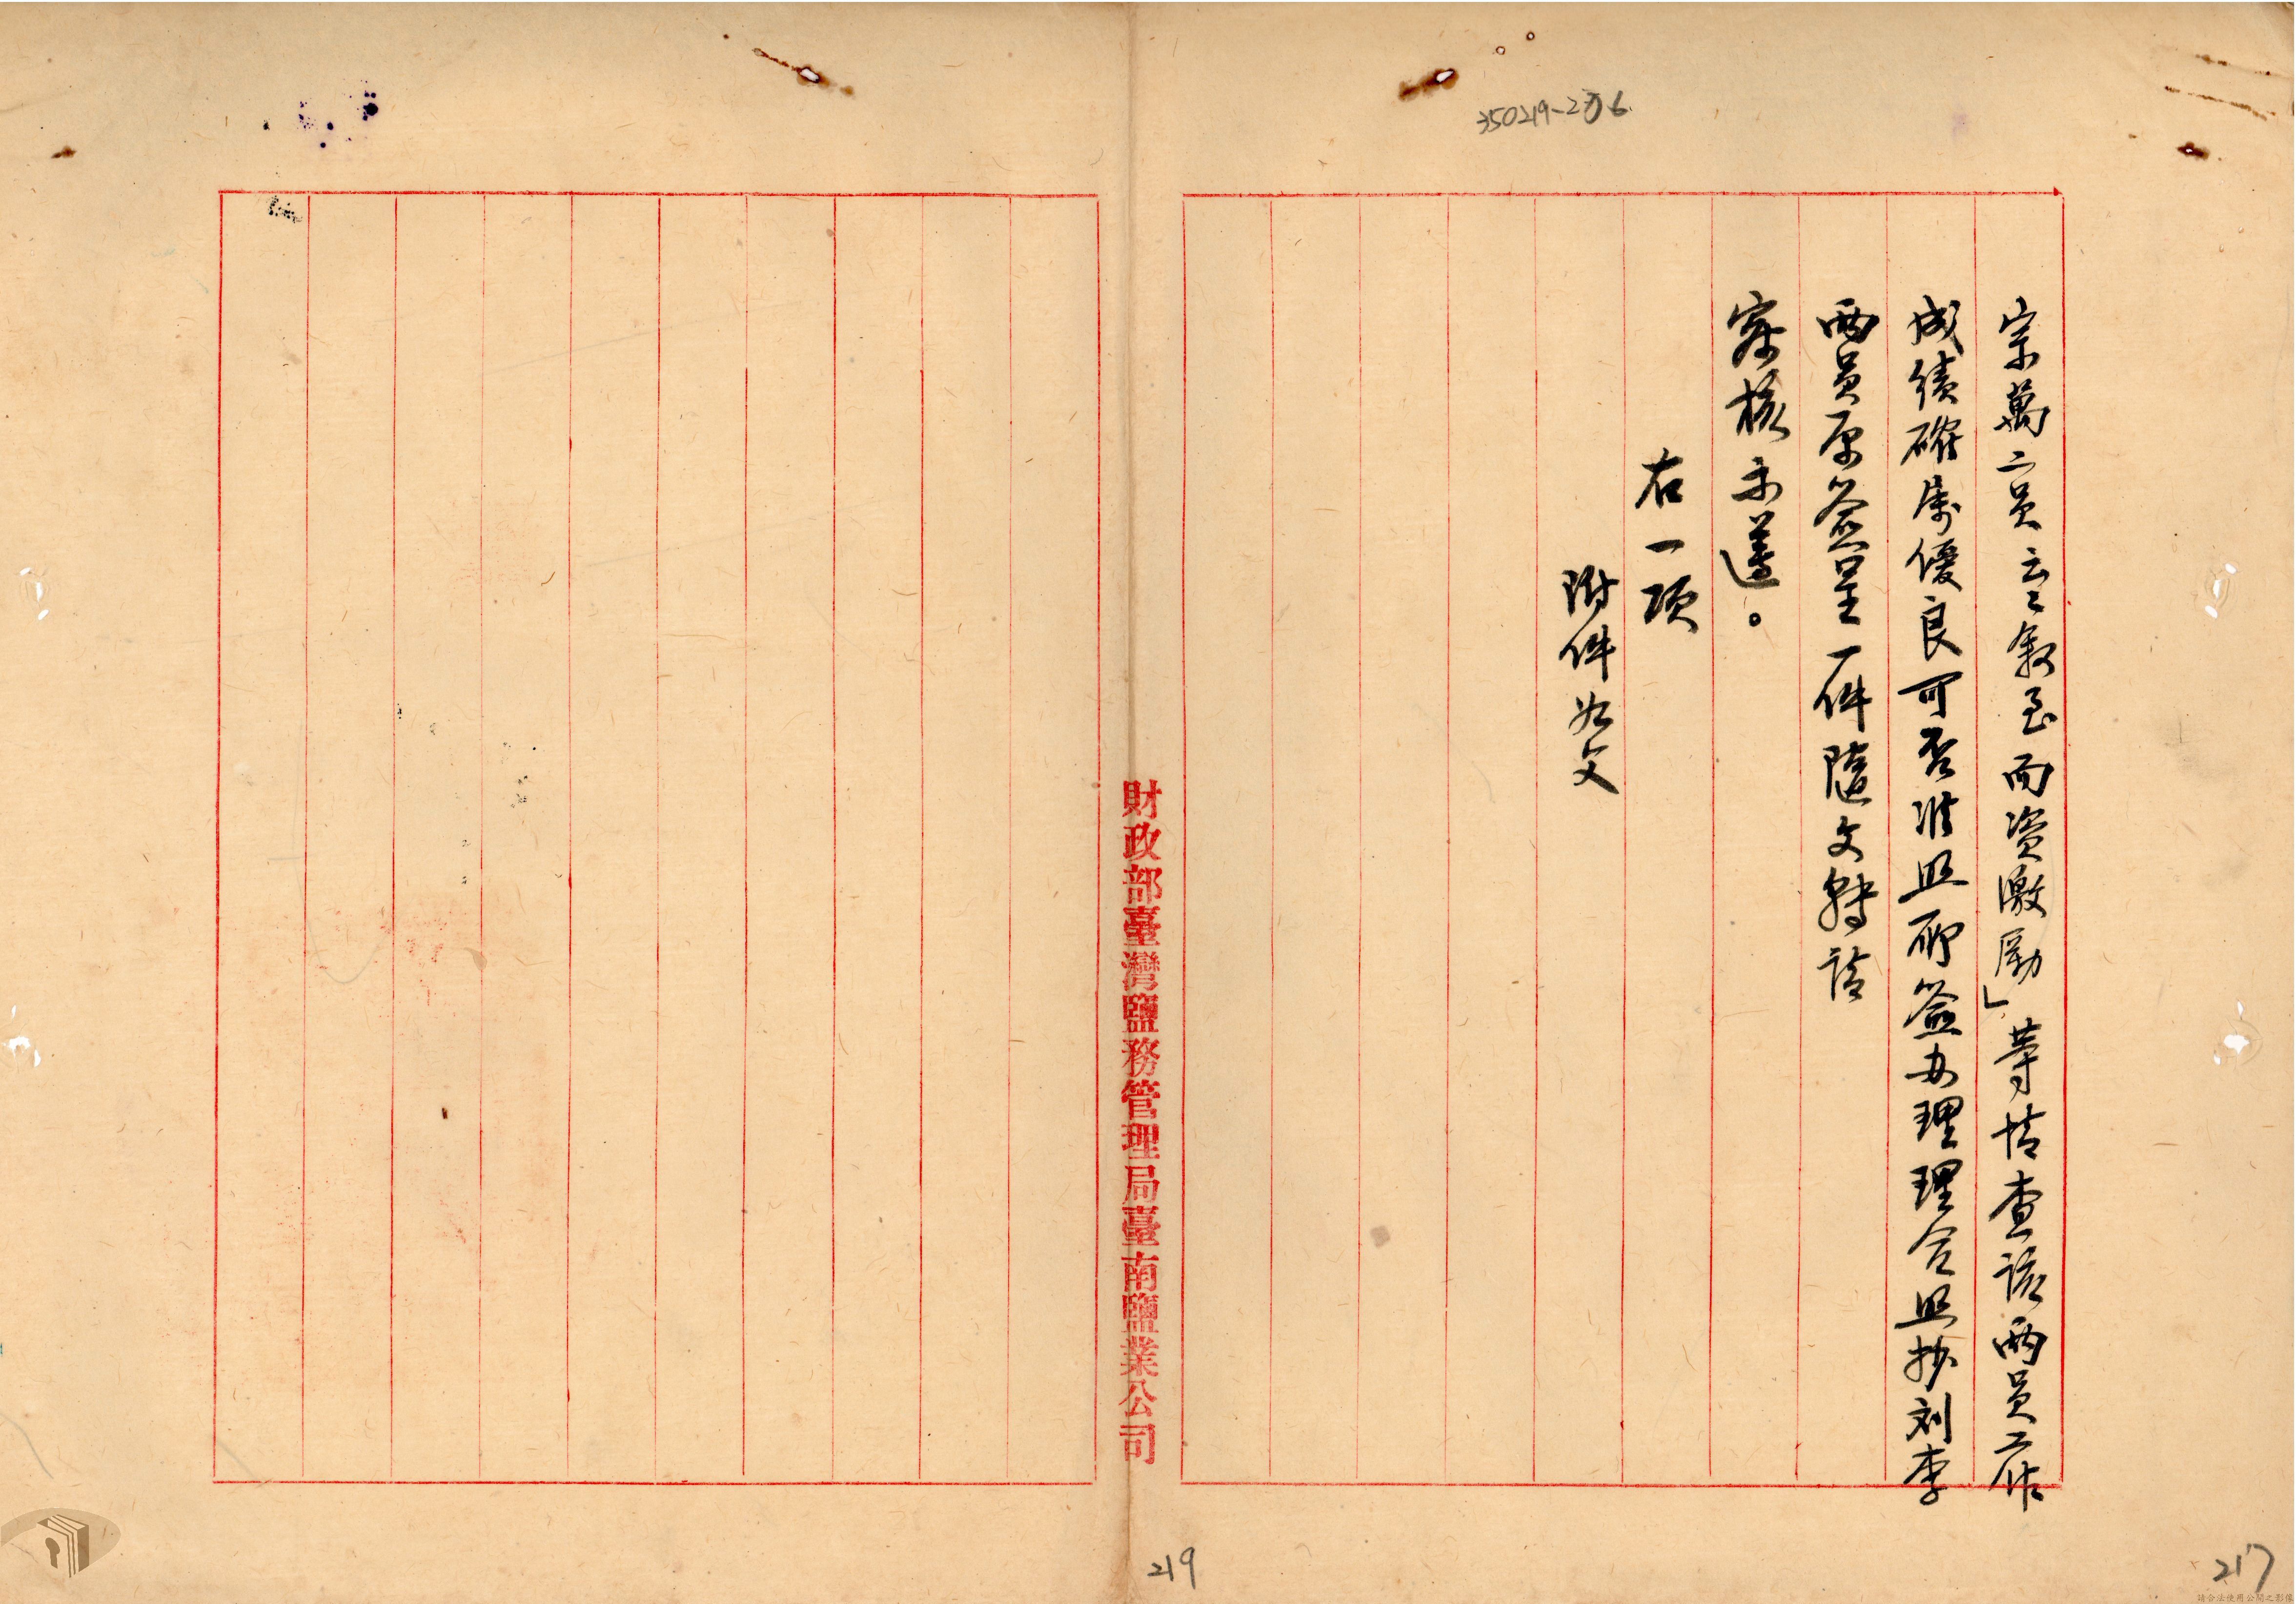 350219-206
宗萬二員云云敘至而資激勵」等情查該兩員工作
成績確屬優良可否准照所簽办理理合照抄刘李
兩員原簽呈一件隨文轉請
察核示遵。
右一項
附件如文
財政部臺灣鹽務管理局臺南鹽業公司
219
217
請合法使用公開之影像